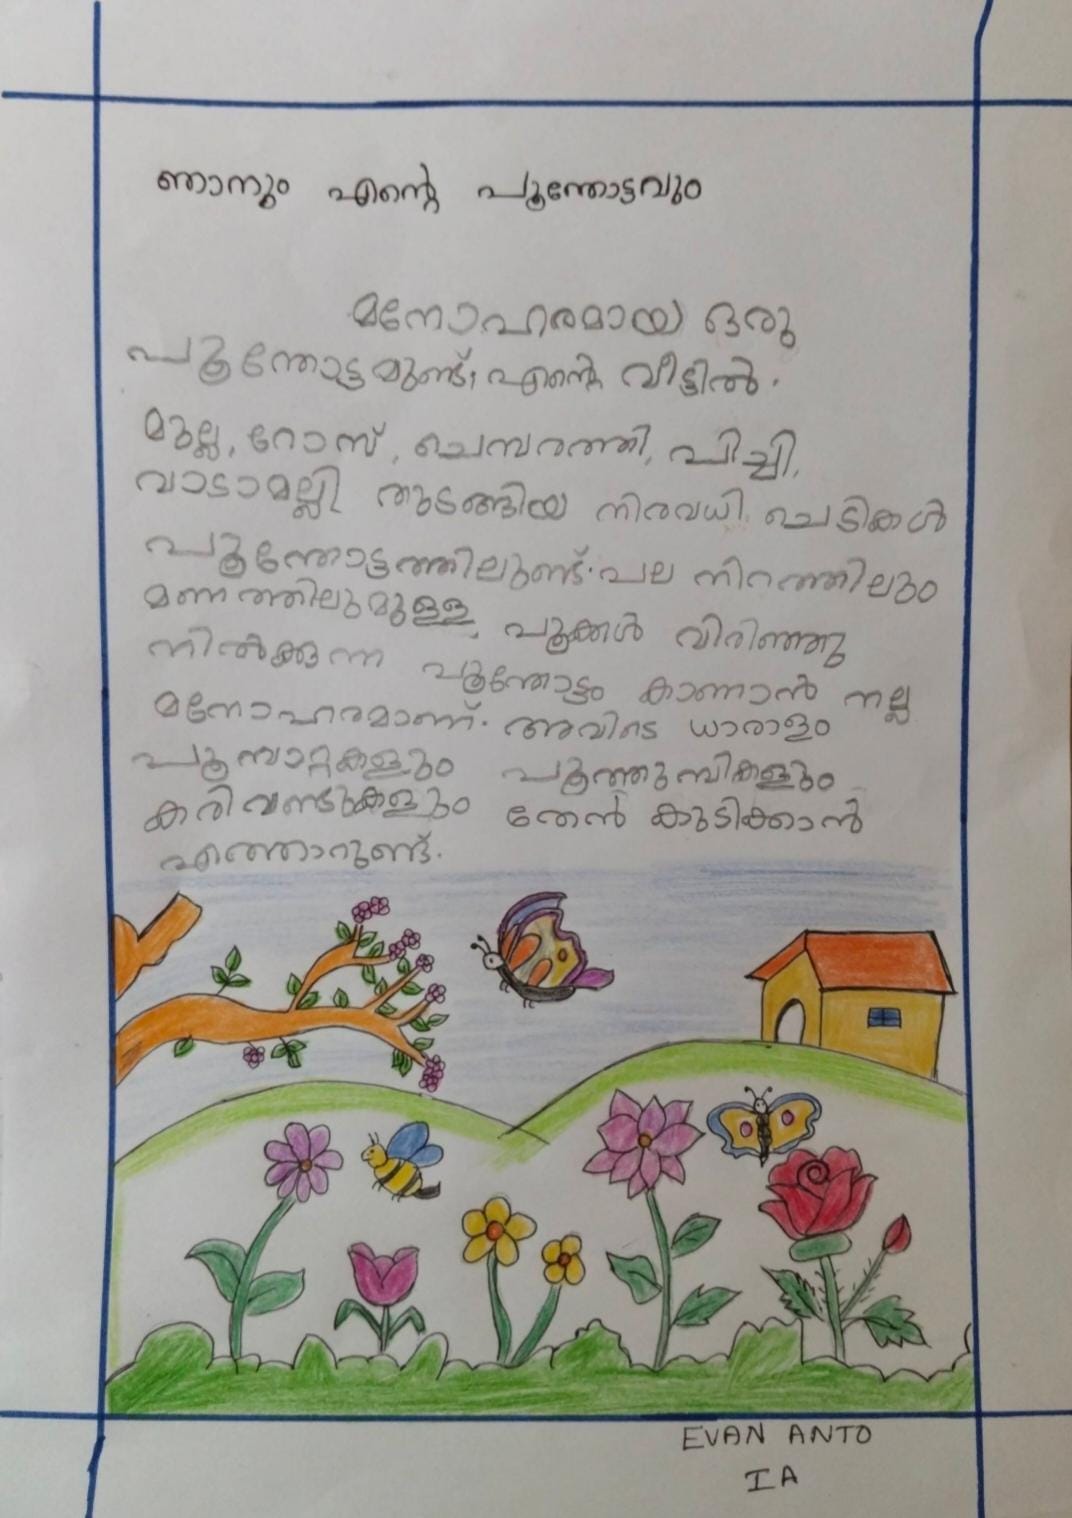 ഞാനും എന്റെ പൂന്തോട്ടവും
മനോഹരമായ ഒരു
പൂന്തോട്ടമുണ്ട് എന്റെ വീട്ടിൽ.
മുല്ല, റോസ്, ചെമ്പരത്തി, പിച്ചി,
വാടാമല്ലി തുടങ്ങിയ നിരവധി ചെടികൾ
പൂന്തോട്ടത്തിലുണ്ട്. പല നിറത്തിലും
മണത്തിലുമുള്ള പൂക്കൾ വിരിഞ്ഞു
നിൽക്കുന്ന പൂന്തോട്ടം കാണാൻ നല്ല
മനോഹരമാണ്. അവിടെ ധാരാളം
പൂമ്പാറ്റകളും പൂത്തുമ്പികളും
കരിവണ്ടുകളും തേൻ കുടിക്കാൻ
എത്താറുണ്ട്.
EVAN ANTO
I A